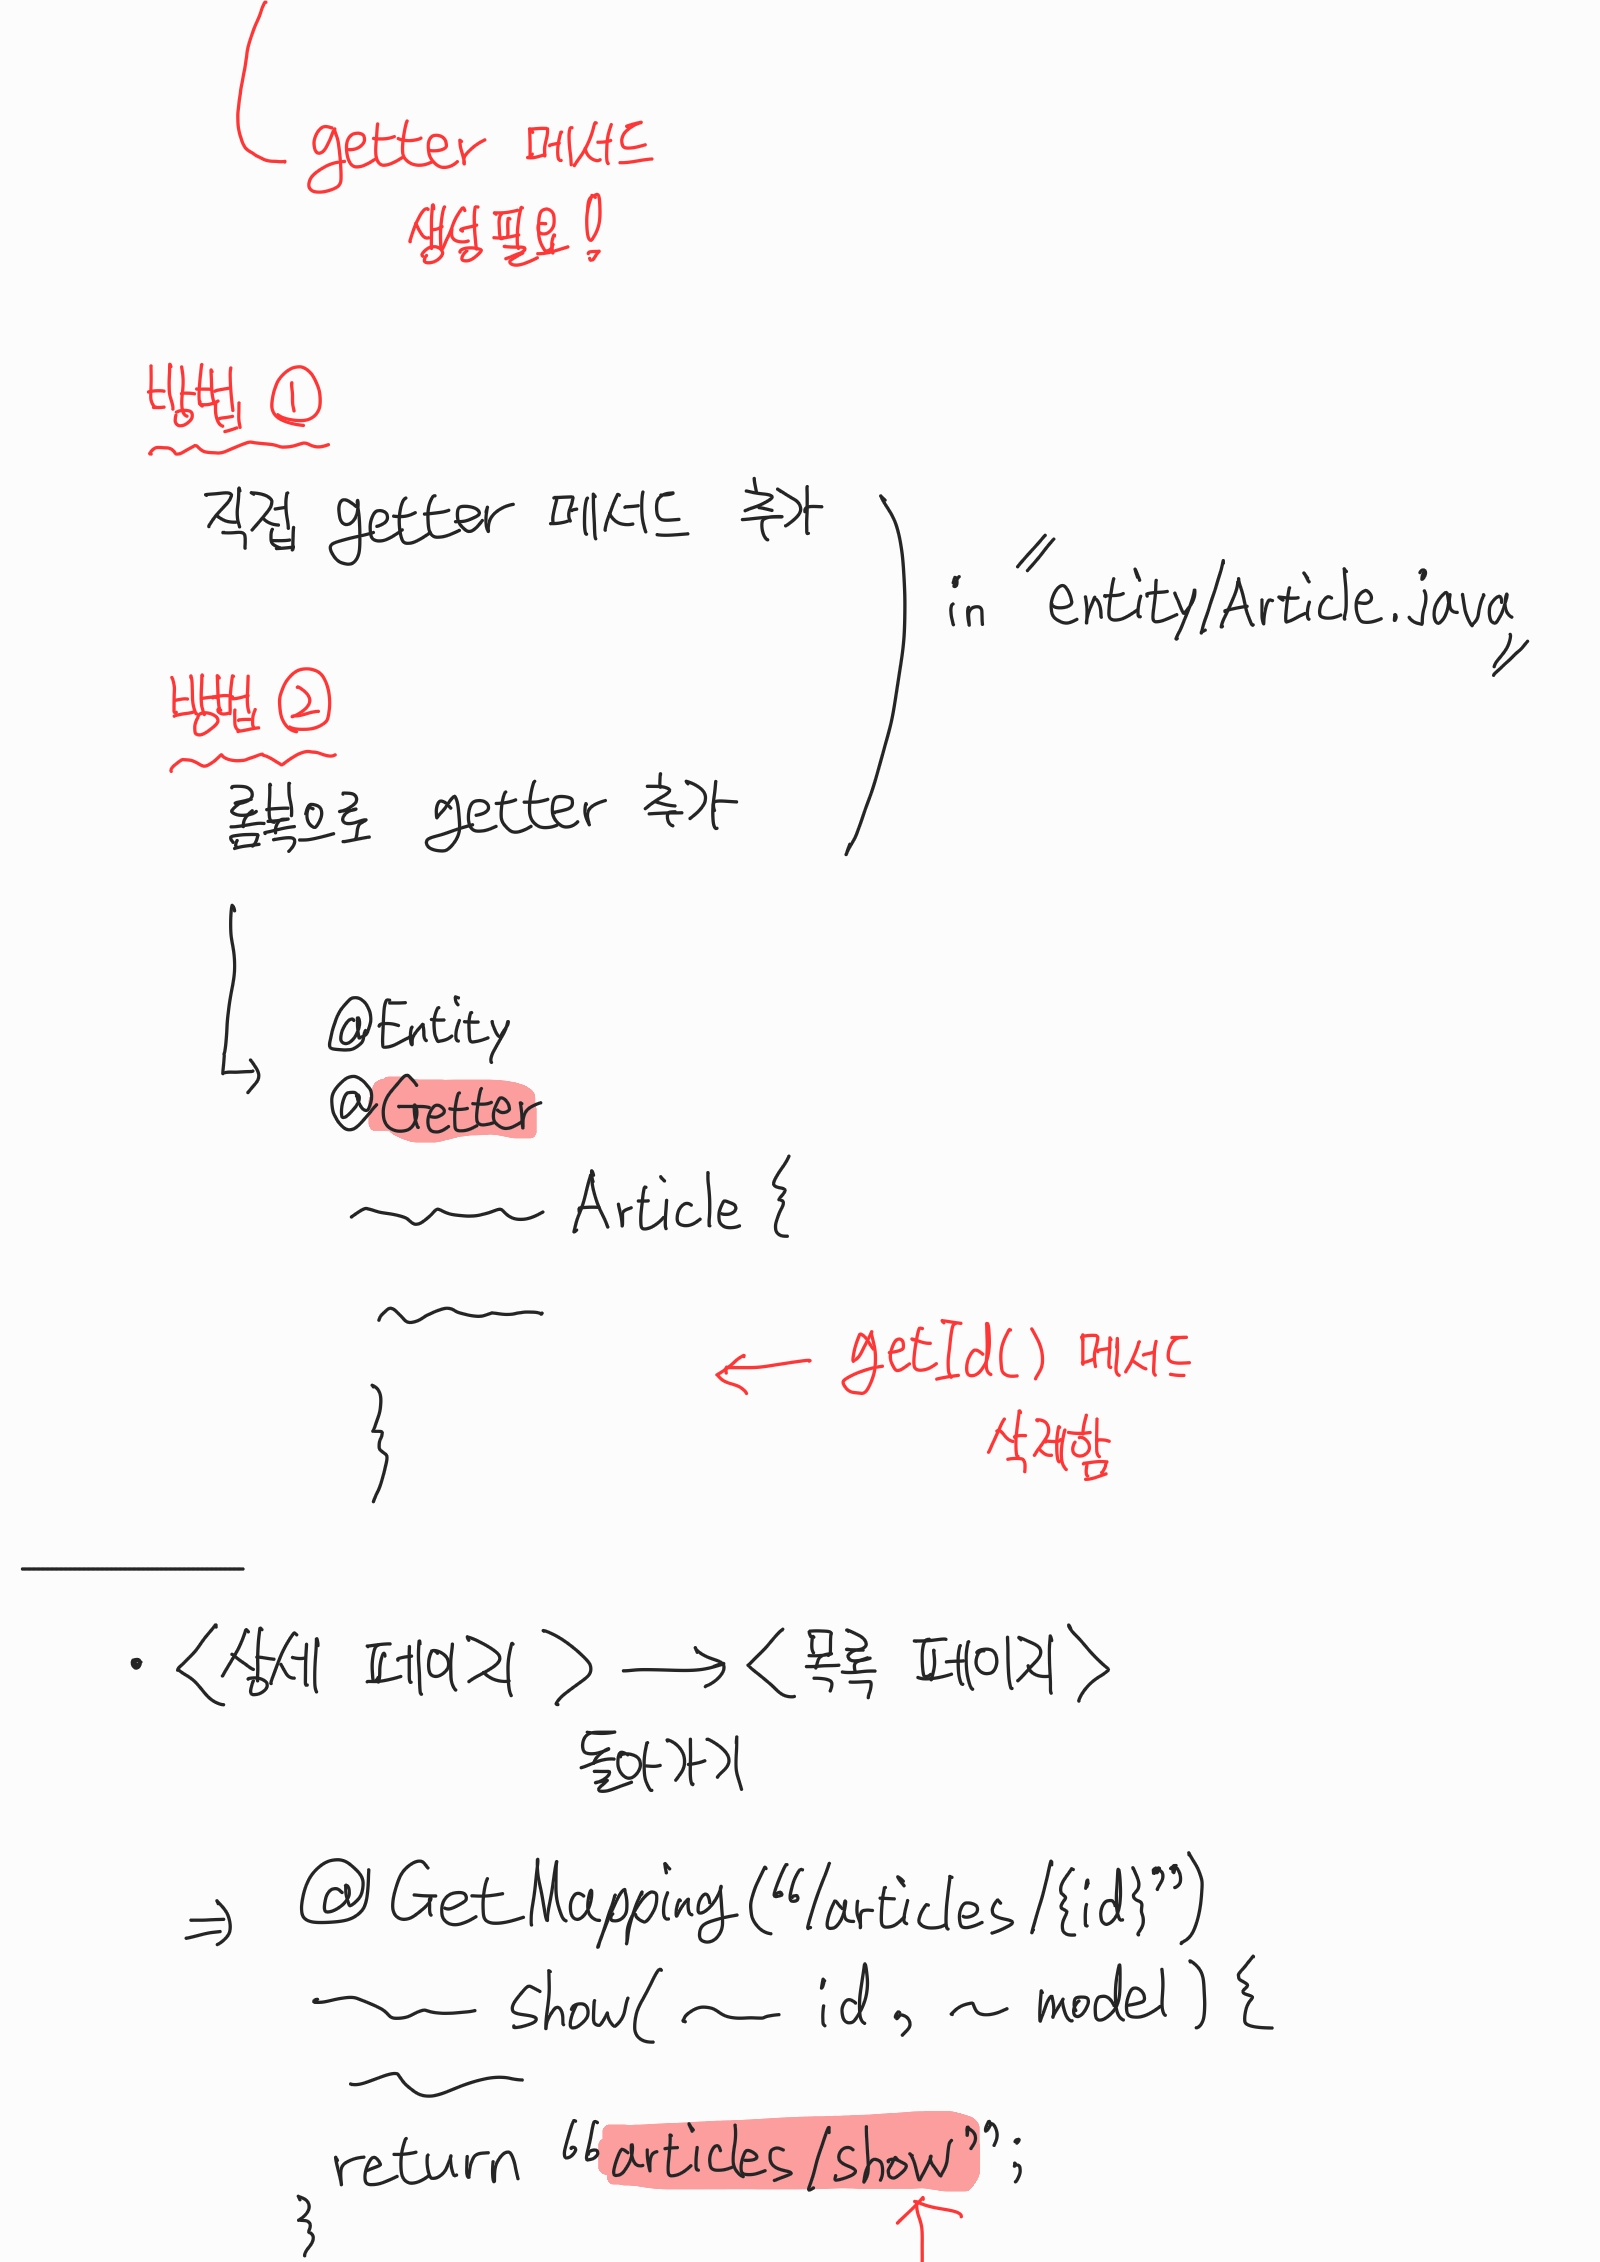 getter 메서드
생성필요!
방법 ①
직접 getter 메서드 추가
in "entity/Article.java"
방법 ②
롬복으로 getter 추가
@Entity
@Getter
Article {
getId() 메서드
삭제함
}
• <상세 페이지> → <목록 페이지>
돌아가기
⇒ @GetMapping("/articles/{id}")
~ show( ~ id, ~ model) {
return "articles/show";
}